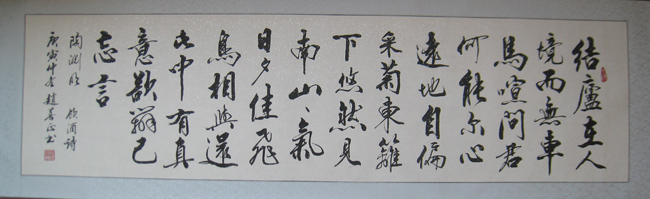 結廬在人
境而無車
馬喧問君
何能尔心
遠地自偏
采菊東籬
下悠然見
南山、氣
日夕佳飛
鳥相與還
此中有真
意欲辯已
忘言
陶渊明 飲酒詩
庚寅仲冬 趙善正书